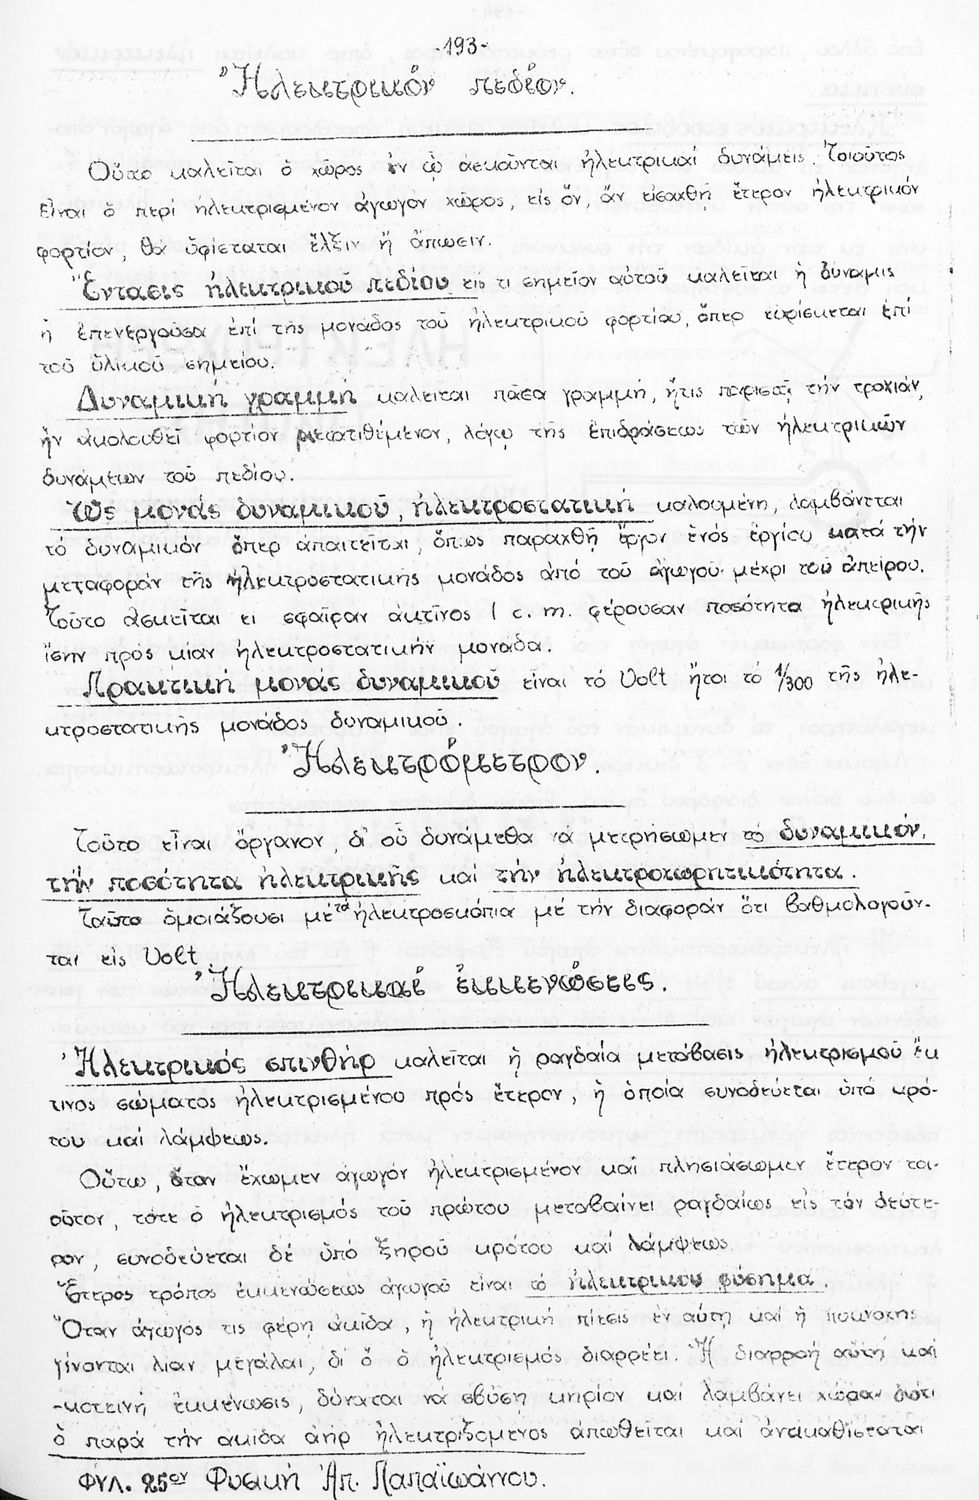 -193-
Ἠλεκτρικόν πεδίον.
Οὕτω καλεῖται ὁ χῶρος ἐν ᾧ ἀσκοῦνται ἠλεκτρικαί δυνάμεις. Τοιοῦτος
εἶναι ὁ περί ἠλεκτρισμένον ἀγωγόν χῶρος, εἰς ὅν, ἄν εἰσαχθῇ ἕτερον ἠλεκτρικόν
φορτίον, θά ὑφίσταται ἕλξιν ἤ ἄπωσιν.
Ἔντασις ἠλεκτρικοῦ πεδίου εἰς τι σημεῖον αὐτοῦ καλεῖται ἡ δύναμις
ἡ ἐπενεργοῦσα ἐπί τῆς μονάδος τοῦ ἠλεκτρικοῦ φορτίου, ὅπερ εὑρίσκεται ἐπί
τοῦ ὑλικοῦ σημείου.
Δυναμική γραμμή καλεῖται πᾶσα γραμμή, ἥτις παριστᾷ τήν τροχιάν,
ἥν ἀκολουθεῖ φορτίον μετατιθέμενον, λόγῳ τῆς ἐπιδράσεως τῶν ἠλεκτρικῶν
δυνάμεων τοῦ πεδίου.
Ὡς μονάς δυναμικοῦ, ἠλεκτροστατική καλουμένη, λαμβάνεται
τό δυναμικόν ὅπερ ἀπαιτεῖται, ὅπως παραχθῇ ἔργον ἑνός ἐργίου κατά τήν
μεταφοράν τῆς ἠλεκτροστατικῆς μονάδος ἀπό τοῦ ἀγωγοῦ μέχρι τοῦ ἀπείρου.
Τοῦτο ἀσκεῖται εἰ σφαῖραν ἀκτῖνος 1 c.m. φέρουσαν ποσότητα ἠλεκτρικῆς
ἴσην πρός μίαν ἠλεκτροστατικήν μονάδα.
Πρακτική μονάς δυναμικοῦ εἶναι τό Volt ἤτοι τό 1/300 τῆς ἠλε-
κτροστατικῆς μονάδος δυναμικοῦ.
Ἠλεκτρόμετρον.
Τοῦτο εἶναι ὄργανον δι' οὗ δυνάμεθα νά μετρήσωμεν τό δυναμικόν,
τήν ποσότητα ἠλεκτρικῆς καί τήν ἠλεκτροχωρητικότητα.
Ταῦτα ὁμοιάζουσι μέ τά ἠλεκτροσκόπια μέ τήν διαφοράν ὅτι βαθμολογοῦν-
ται εἰς Volt.
Ἠλεκτρικαί ἐκκενώσεις.
Ἠλεκτρικός σπινθήρ καλεῖται ἡ ραγδαία μετάβασις ἠλεκτρισμοῦ ἔκ
τινος σώματος ἠλεκτρισμένου πρός ἕτερον, ἡ ὁποία συνοδεύεται ὑπό κρό-
του καί λάμψεως.
Οὕτω, ὅταν ἔχωμεν ἀγωγόν ἠλεκτρισμένον καί πλησιάσωμεν ἕτερον τοι-
οῦτον, τότε ὁ ἠλεκτρισμός τοῦ πρώτου μεταβαίνει ραγδαίως εἰς τόν δεύτε-
ρον, συνοδεύεται δέ ὑπό ξηροῦ κρότου καί λάμψεως
Ἕτερος τρόπος ἐκκενώσεως ἀγωγοῦ εἶναι τό ἠλεκτρικόν φύσημα.
Ὅταν ἀγωγός τις φέρῃ ἀκίδα, ἡ ἠλεκτρική πίεσις ἐν αὐτῇ καί ἡ πυκνότης
γίνονται λίαν μεγάλαι, δι' ὅ ὁ ἠλεκτρισμός διαρρέει. Ἡ διαρροή αὕτη καί
σκοτεινή ἐκκένωσις, δύναται νά σβύσῃ κηρίον καί λαμβάνει χώραν διότι
ὁ παρά τήν ἀκίδα ἀήρ ἠλεκτριζόμενος ἀπωθεῖται καί ἀντικαθίσταται
ΦΥΛ. 25ον Φυσική Ἀπ. Παπαϊωάννου.